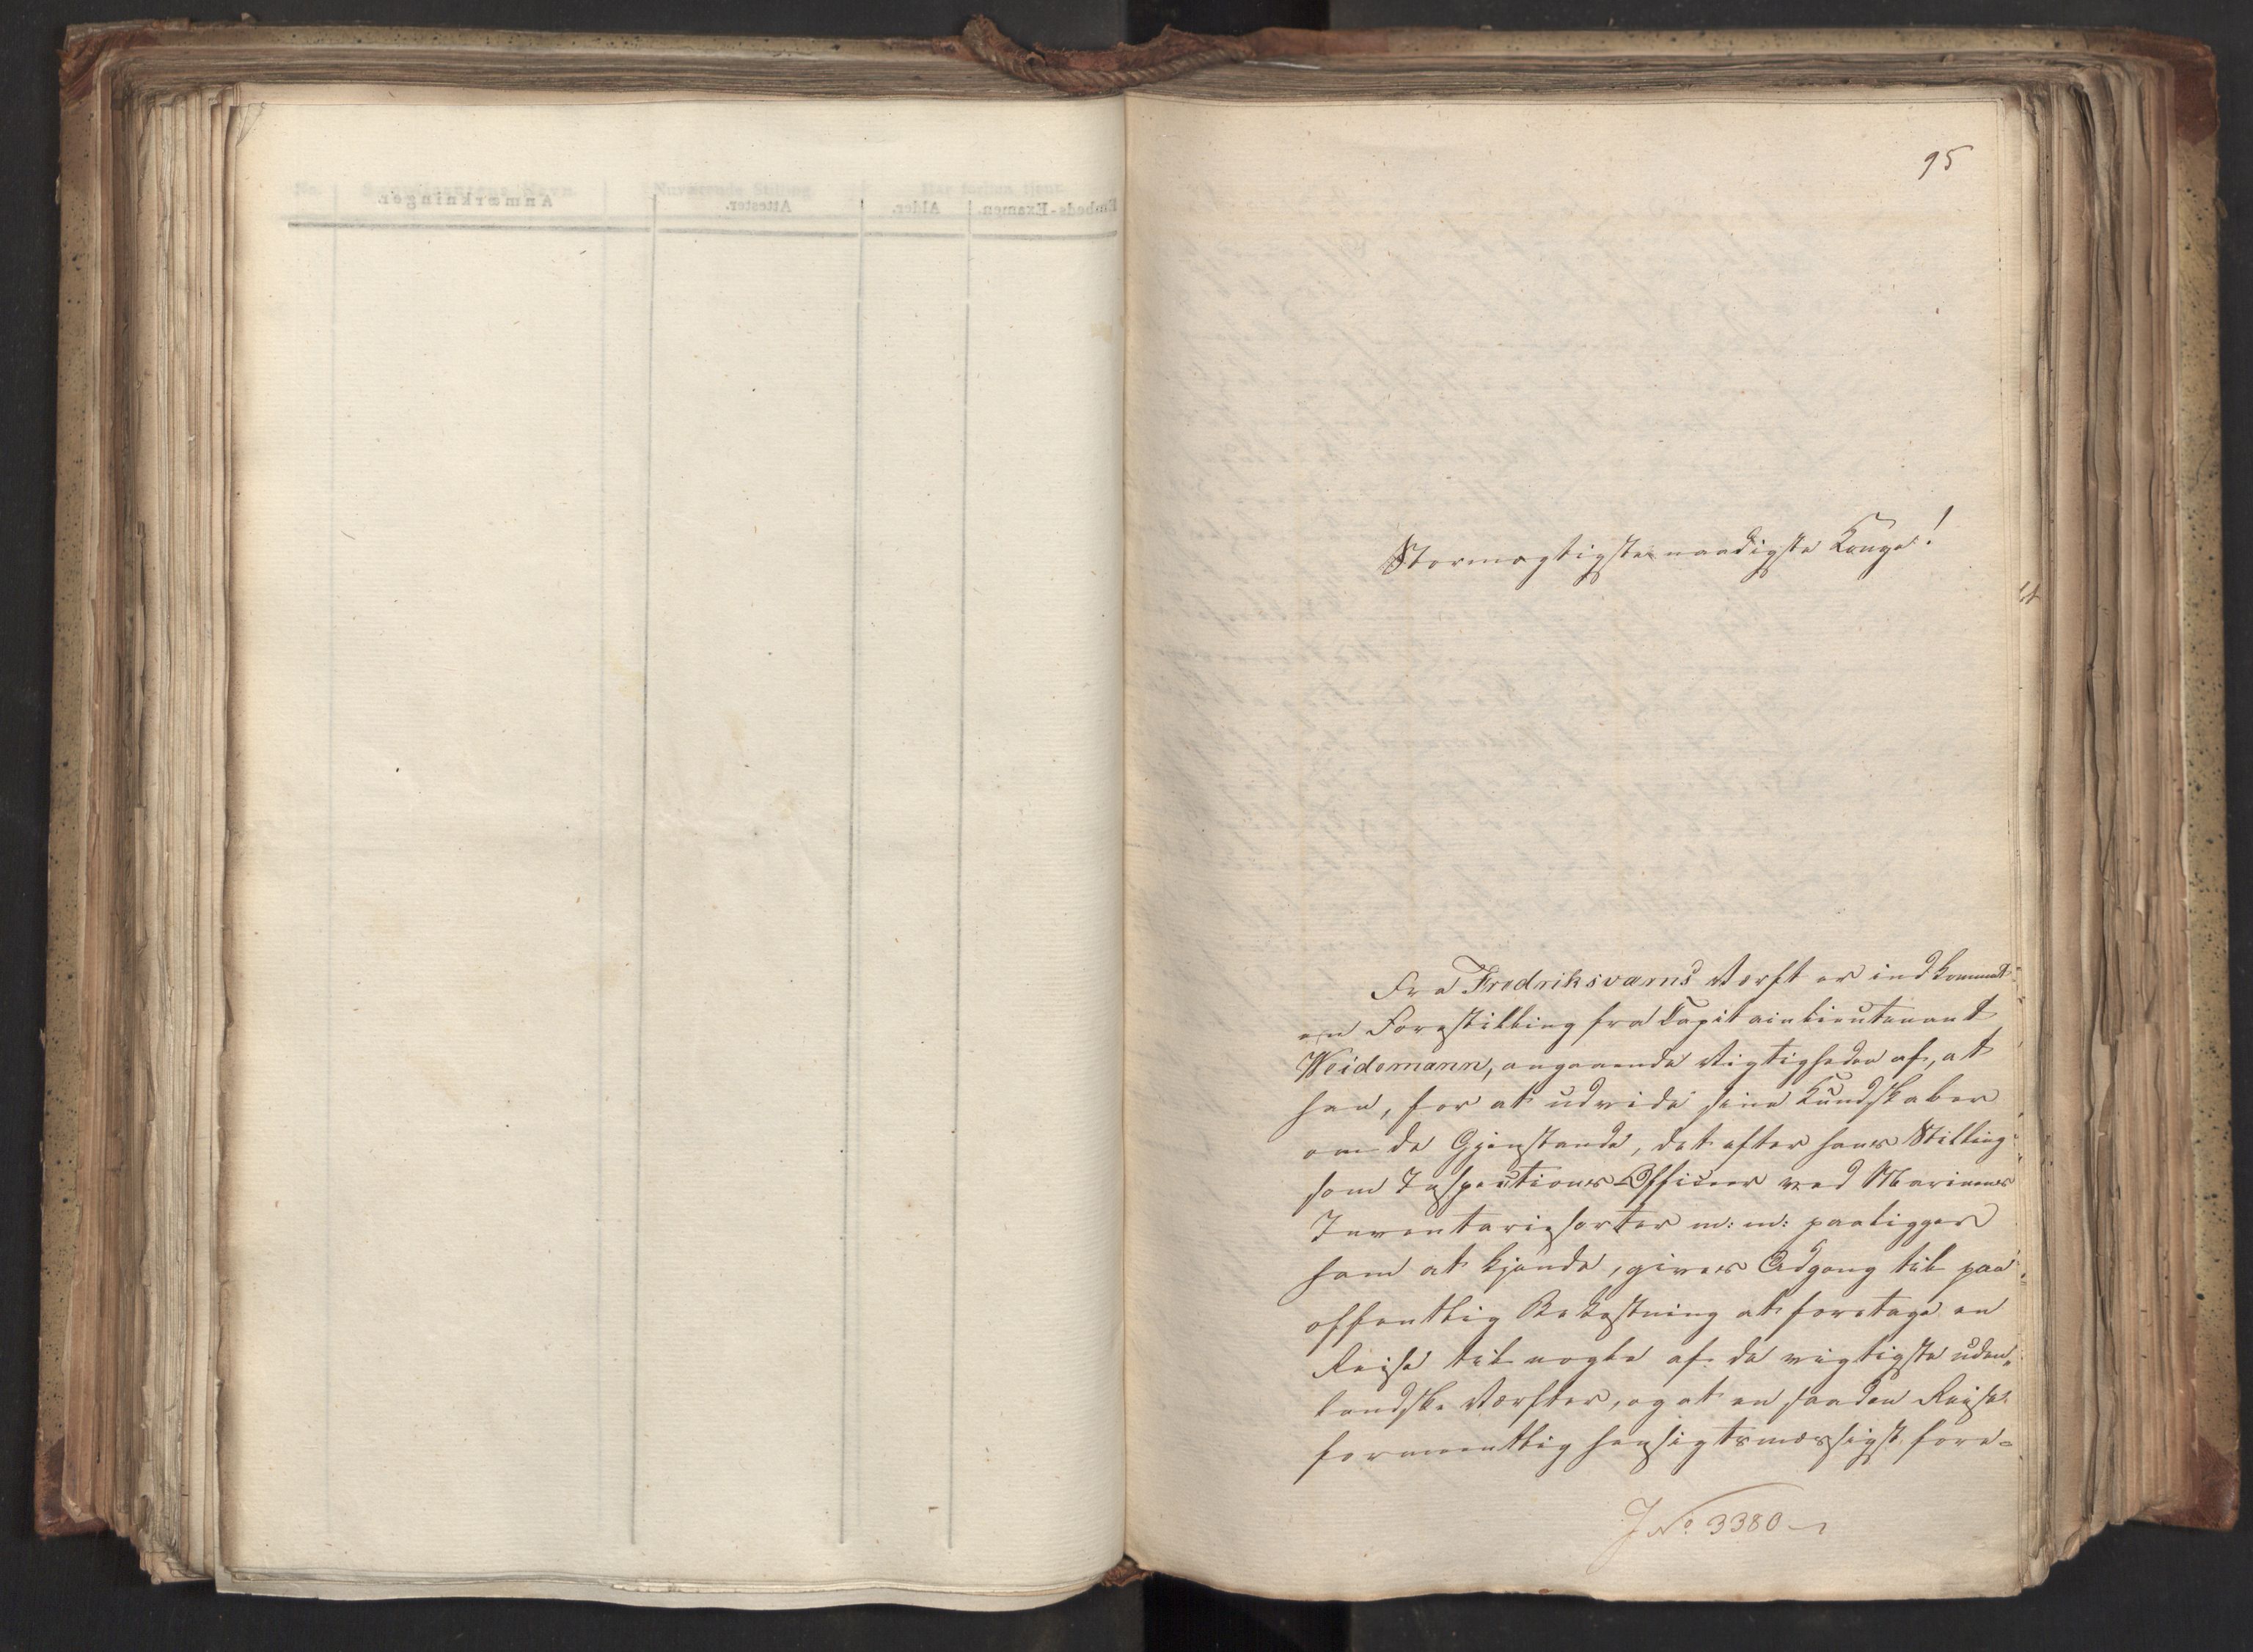 No. Supplicantens Navn. Nuværende Stilling. Har forhen tjent
Anmærkninger. Attester. Alder. Embeds-Examen.
95
Stormægtigste naadigste Konge!
Fra Fredriksværns Værft er indkommet
en Forestilling fra Capitainlieutenant
Weidemann, angaaende Vigtigheden af, at
han, for at udvide sine Kundskaber
om de Gjenstande, det efter hans Stilling
som Inspections-Officeer ved Marinens
Inventariesorter m: m: paaligger
ham at kjende, gives Adgang til paa
offentlig Bekostning at foretage en
Reise til nogle af de vigtigste uden„
landske Værfter, og at en saadan Reise
formeentlig hensigtsmæssigst fore-
J No 3380